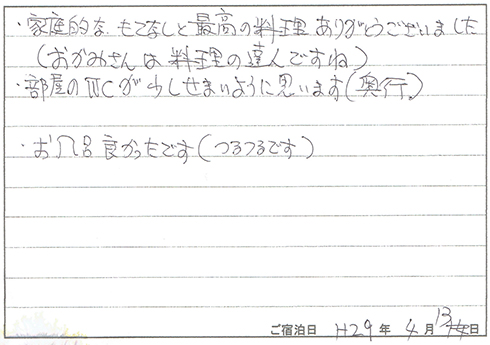 ・家庭的な、もてなしと最高の料理ありがとうございました
(おかみさんは料理の達人ですね)
・部屋のWCが少しせまいように思います(奥行)
・お風呂良かったです(つるつるです)
ご宿泊日 H29年 4月13日